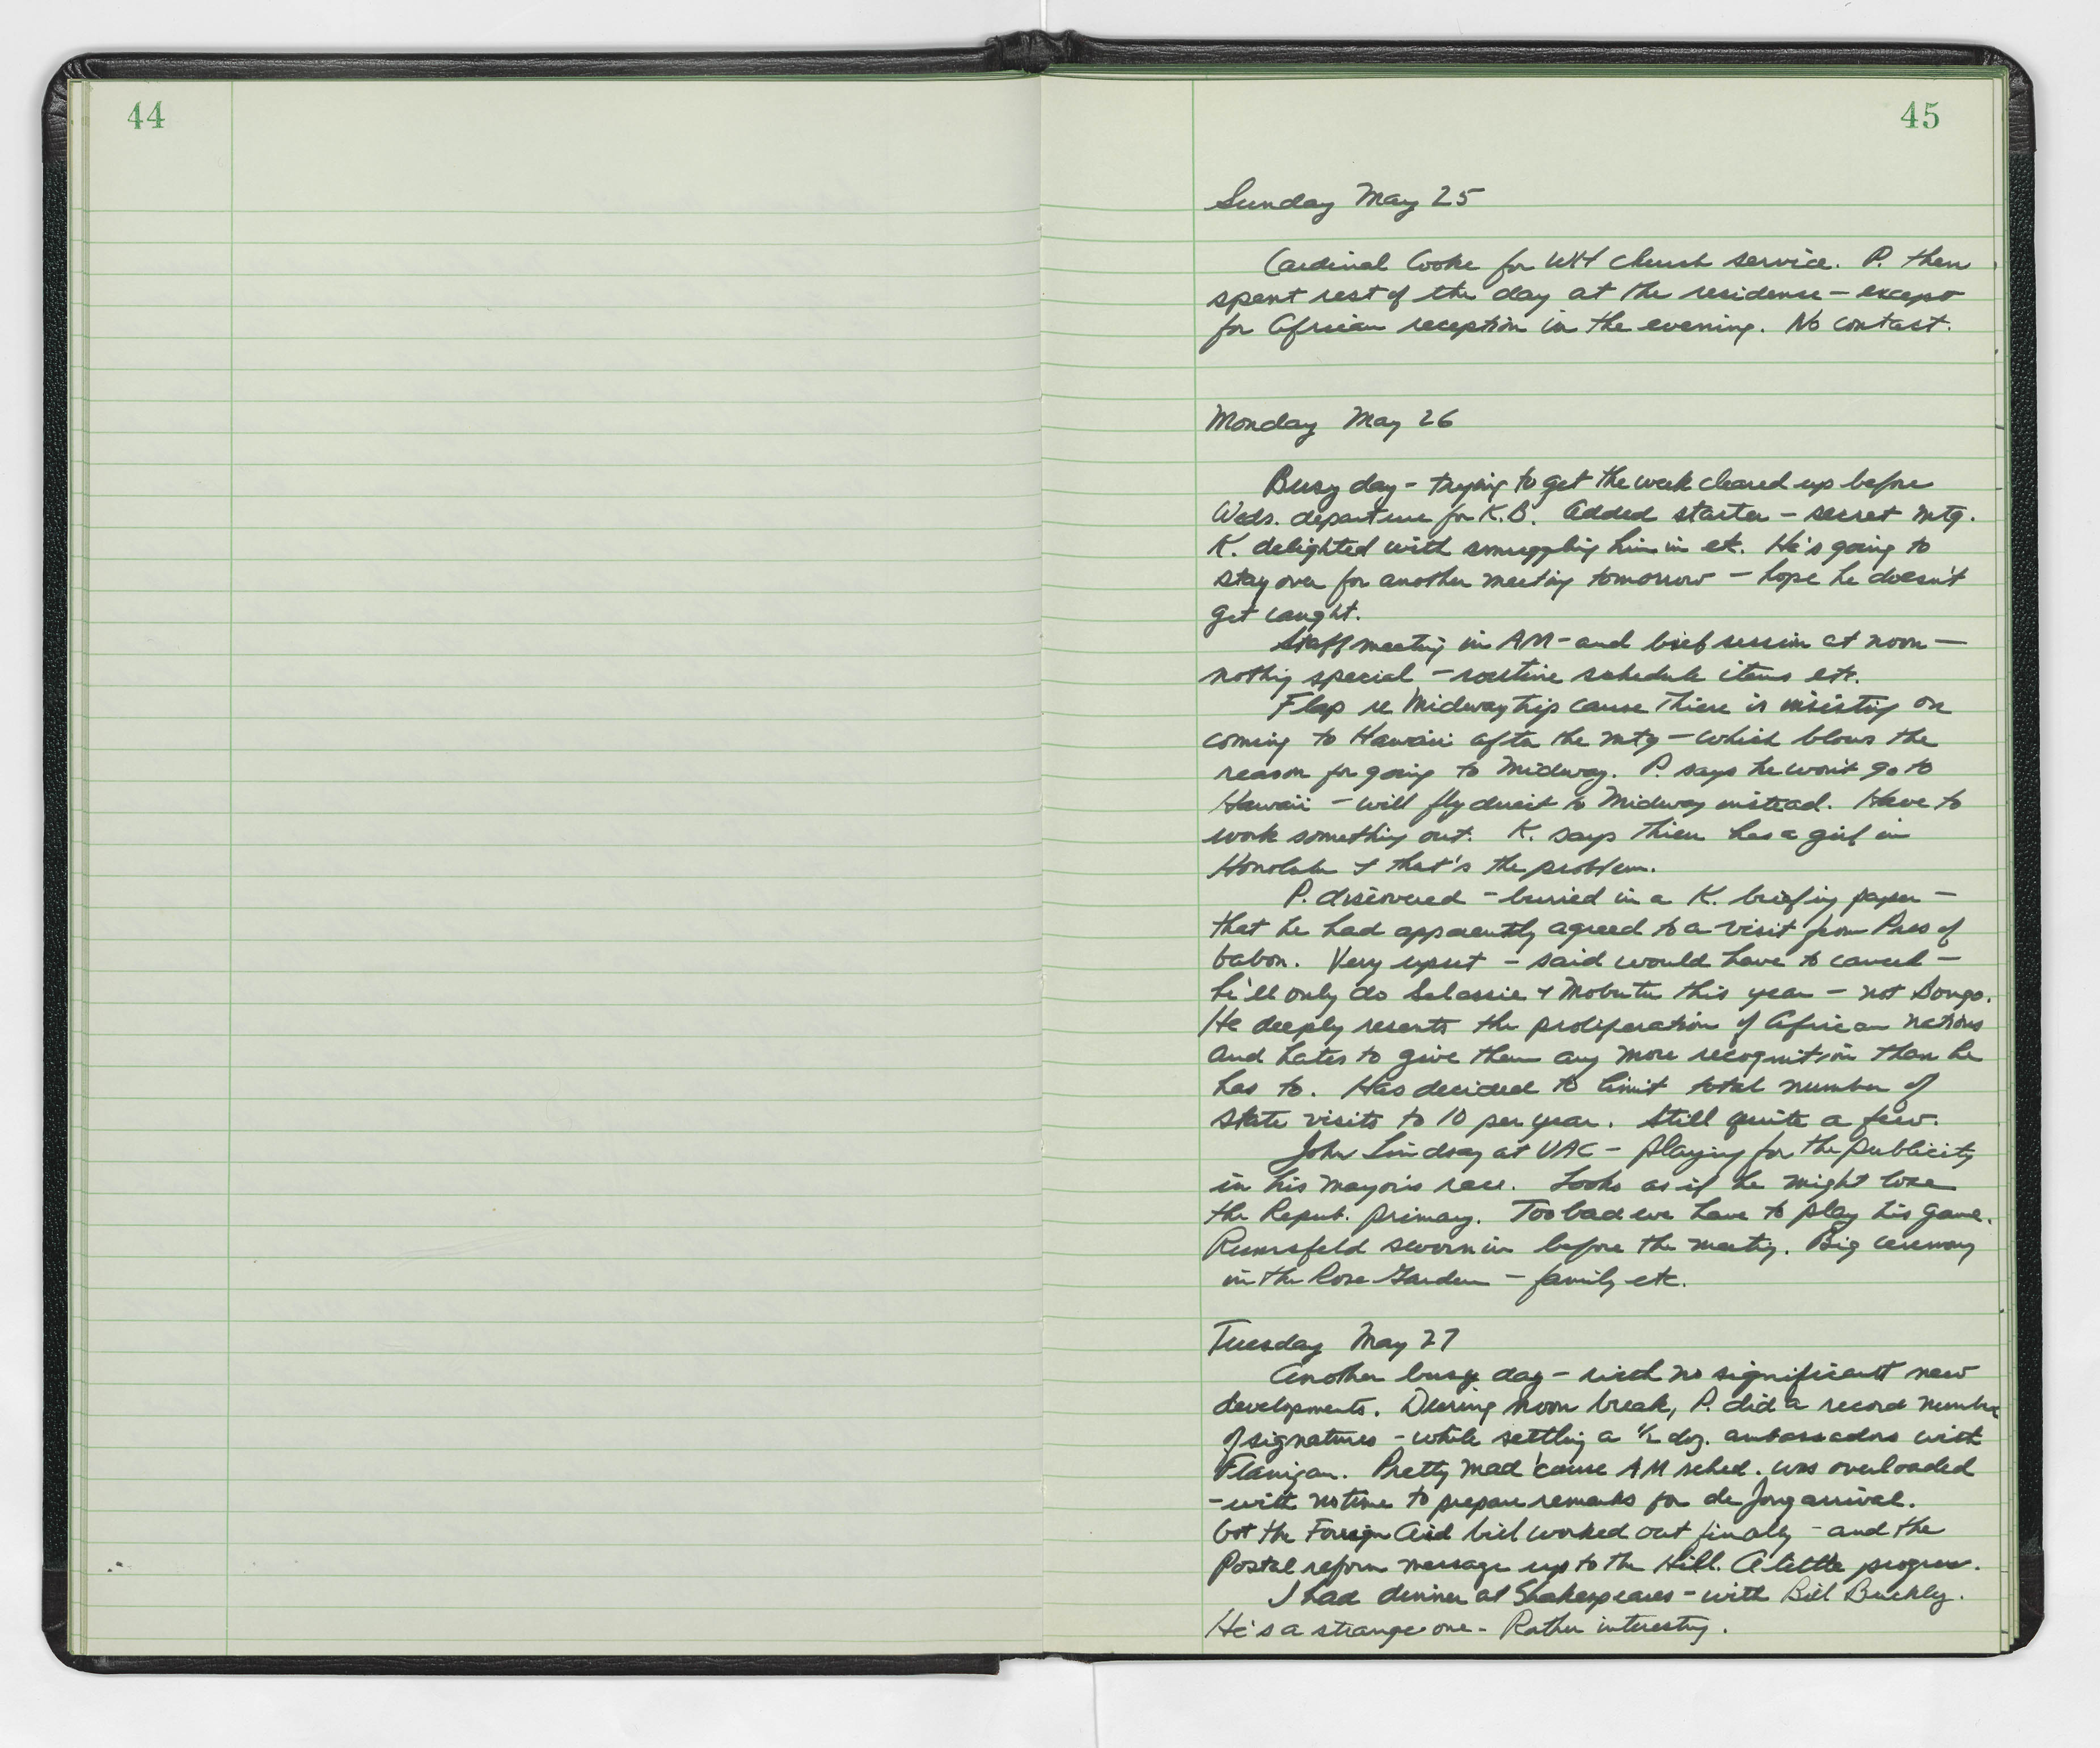 44
45
Sunday May 25
Cardinal Cooke for WH church service. P. then
spent rest of the day at the residence – except
for African reception in the evening. No contact.
Monday May 26
Busy day – trying to get the week cleared up before
Weds. departure for K.B. Added starter – secret mtg.
K. delighted with smuggling him in etc. He's going to
stay over for another meeting tomorrow – hope he doesn't
get caught.
Staff meeting in AM – and brief session at noon –
nothing special – routine schedule items etc.
Flap re Midway trip cause Thieu is insisting on
coming to Hawaii after the mtg – which blows the
reason for going to Midway. P. says he won't go to
Hawaii – will fly direct to Midway instead. Have to
work something out. K. says Thieu has a girl in
Honolulu & that's the problem.
P. discovered – buried in a K. briefing paper –
that he had apparently agreed to a visit from Pres of
Gabon. Very upset – said would have to cancel –
he'll only do Selassie & Mobutu this year – not Bongo.
He deeply resents the proliferation of African nations
and hates to give them any more recognition than he
has to. Has decided to limit total number of
state visits to 10 per year. Still quite a few.
John Lindsay at UAC – playing for the publicity
in his mayor's race. Looks as if he might lose
the Repub. primary. Too bad we have to play his game.
Rumsfeld sworn in before the meeting. Big ceremony
in the Rose Garden – family etc.
Tuesday May 27
Another busy day – with no significant new
developments. During noon break, P. did a record number
of signatures – while settling a ½ doz. ambassadors with
Flanigan. Pretty mad 'cause AM sched. was overloaded
– with no time to prepare remarks for de Jong arrival.
Got the Foreign Aid bill worked out finally – and the
Postal reform message up to the Hill. A little progress.
I had dinner at Shakespeares – with Bill Buckley.
He's a strange one – Rather interesting.